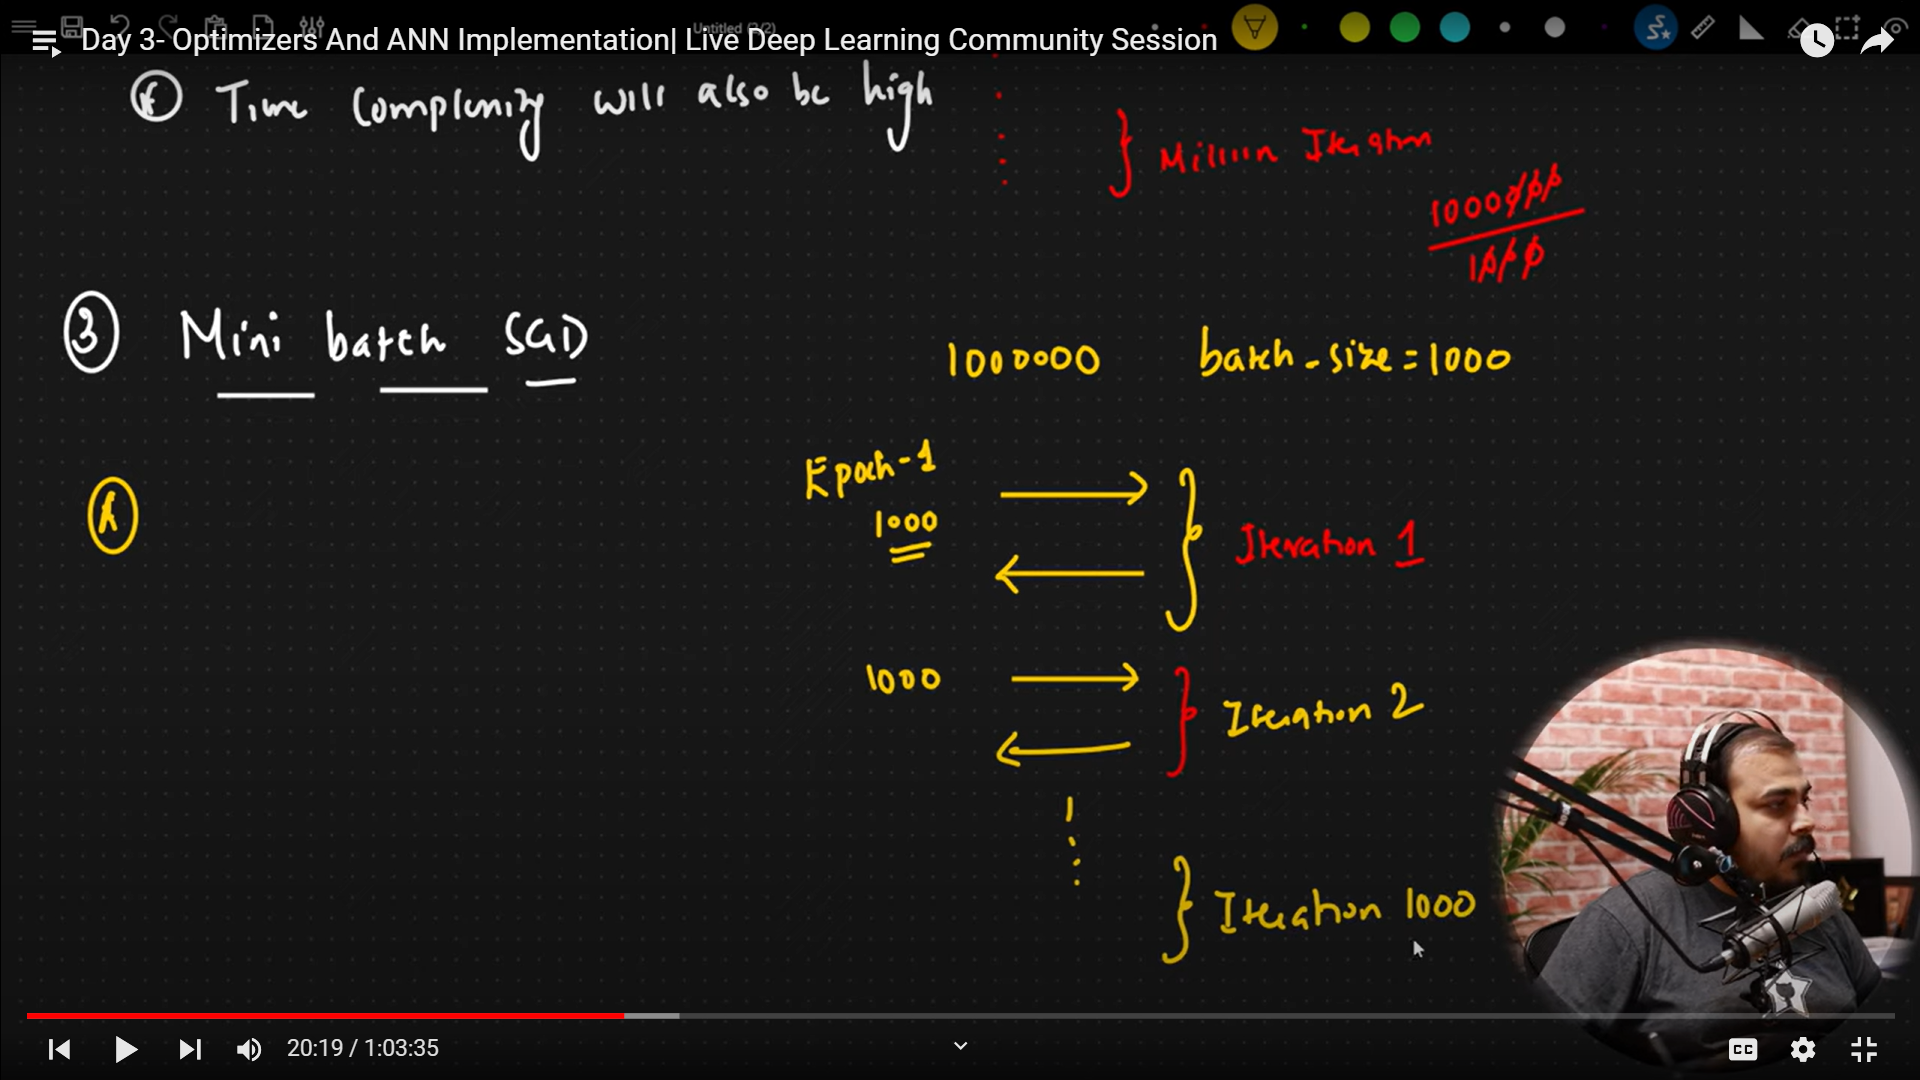 Day 3- Optimizers And ANN Implementation| Live Deep Learning Community Session
Untitled (2/2)
Time Complexity will also be high
} Million Iteration
1000000
1000
3 Mini batch SGD
1000000 batch-size=1000
Epoch-1
1000
Iteration 1
1000
Iteration 2
Iteration 1000
20:19 / 1:03:35
CC